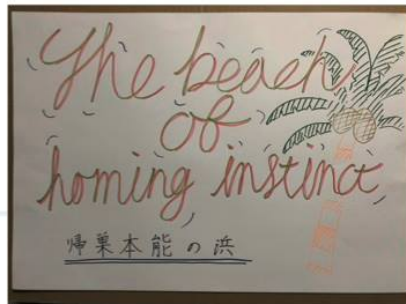 The beach
of
homing instinct
帰巣本能の浜